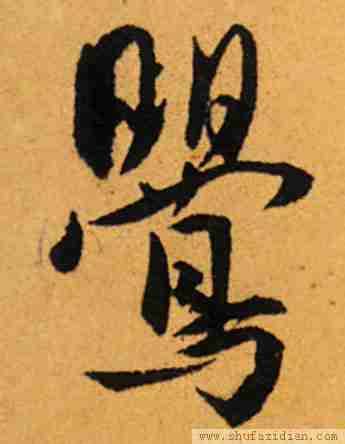 鸎
www.shufazidian.com